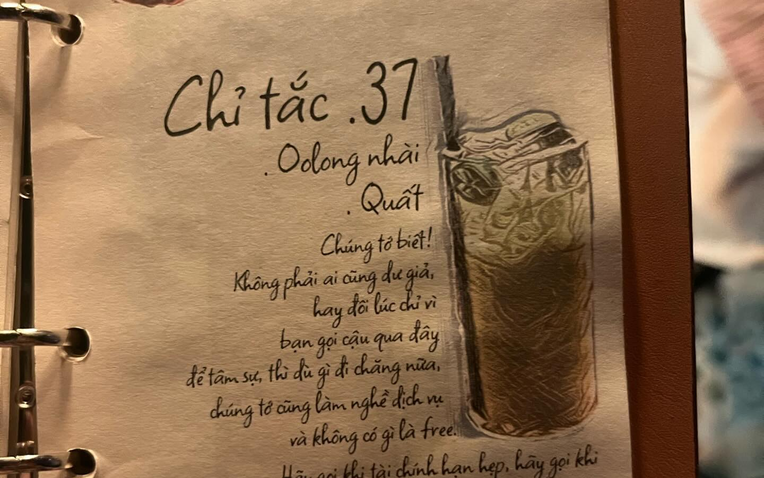 Chỉ tắc .37
. Oolong nhài
. Quất
Chúng tớ biết!
Không phải ai cũng dư giả,
hay đôi lúc chỉ vì
bạn gọi cậu qua đây
để tâm sự, thì dù gì đi chăng nữa,
chúng tớ cũng làm nghề dịch vụ
và không có gì là free.
Hãy gọi khi tài chính hạn hẹp, hãy gọi khi